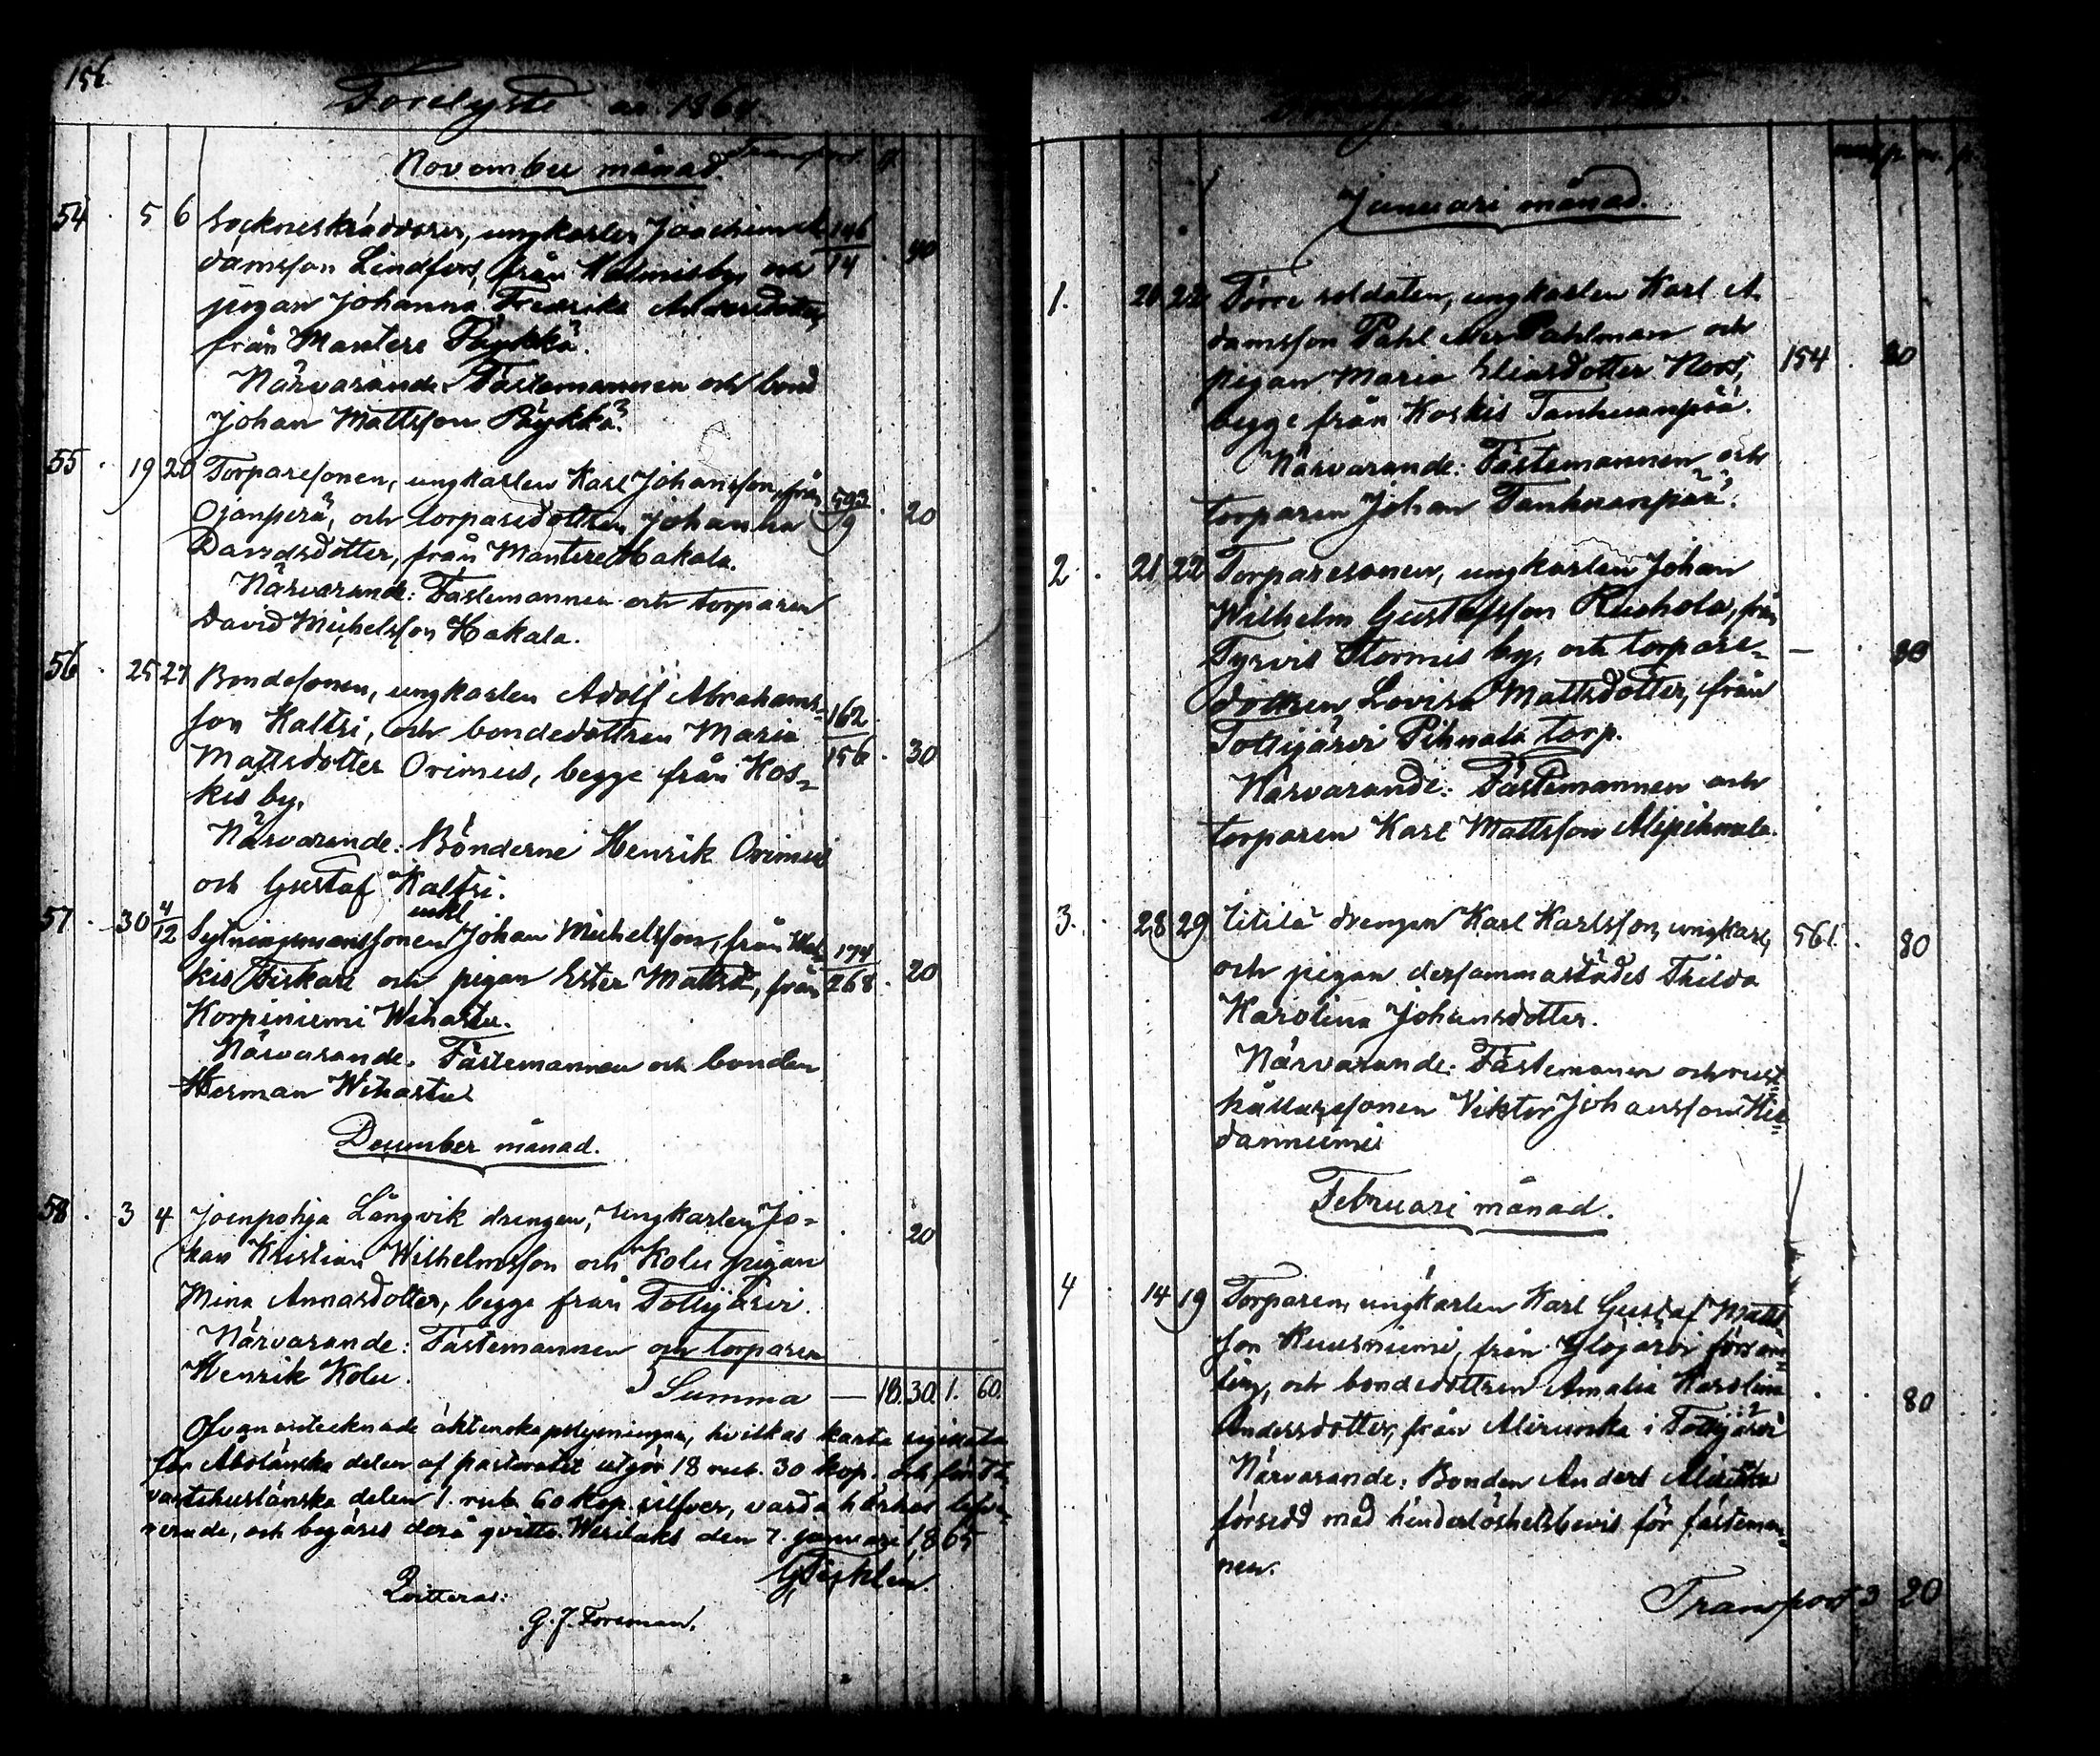 156.
Förelyste år 1864.
Transport
November månad.
54 5 6 Sockneskräddaren, ungkarlen Joachim A 146/14 40
damsson Lindfors, från by, och
pigan Johanna Fredrika Andersdotter,
från Mantere Päykkä.
Närvarande: Fästemannen och bond
Johan Mattsson Päykkä.
55 19 20 Torparesonen, ungkarlen Karl Johansson, från 593/9 20
Ojanperä, och torparedottren Johanna
Davidsdotter, från Mantere Hakala.
Närvarande: Fästemannen och torparen
David Michelsson Hakala.
56 25 27 Bondesonen, ungkarlen Adolf Abrahams- 162/156 30
son Kaltsi, och bondedottren Maria
Mattsdotter Orimus, begge från Kos-
kis by.
Närvarande: Bönderne Henrik Orimus
och Gustaf Kaltsi.
57 30 4/12 Sytningsmanssonen, unkl Johan Michelsson, från 174/268 20
kis Piskari och pigan Ester Mattsd., från
Korpiniemi Wihattu.
Närvarande: Fästemannen och bonden
Herman Wihattu
December månad.
58 3 4 Joenpohja Långvik drengen, ungkarlen Jo- 20
han Kristian Wilhelmsson och Kolu pigan
Mina Annasdotter, begge från Tottijärvi.
Närvarande: Fästemannen och torparen
Henrik Kolu.
Summa — 18. 30. 1. 60.
Ofvanantecknade äktenskapslysningar, hvilkas karta
för Abolänska delen af pastoratet utgör 18 rub. 30 kop. och för Ta-
vastehuslänska delen 1. rub. 60 kop. silfver, varda härhos
nerade, och begäres derå qvitto. Wesilaks den 7. januari 1865
Qvitteras:
G. J. Forsman.
m. p.
Januari månad.
1. 21 22 Förre soldaten, ungkarlen Karl A- 154 80
damsson Pahlman och
pigan Maria Eliasdotter Noos,
begge från Koskis Tanhuanpää.
Närvarande: Fästemannen och
torparen Johan Tanhuanpää.
2. 21 22 Torparesonen, ungkarlen Johan — 80
Wilhelm Gustafsson Ruohola, från
Tyrvis Stormis by, och torpare-
dottren Lovisa Mattsdotter, från
Tottijärvi Pihnala torp.
Närvarande: Fästemannen och
torparen Karl Mattsson Alipihnala.
3. 28 29 Utitila drengen Karl Karlsson, ungkarl, 561. 80
och pigan dersammastädes Thilda
Karolina Johansdotter.
Närvarande: Fästemannen och rust-
hållaresonen Viktor Johansson Hii-
danniemi
Februari månad.
4 14 19 Torparen, ungkarlen Karl Gustaf Matts 80
son Kuusniemi, från Ylöjärvi försam-
ling, och bondedottren Amalia Karolina
Andersdotter, från Alirunka i Tottijärvi
Närvarande: Bonden Anders
försedd med hinderlöshetsbevis för fästeman-
nen.
Transport 3 20